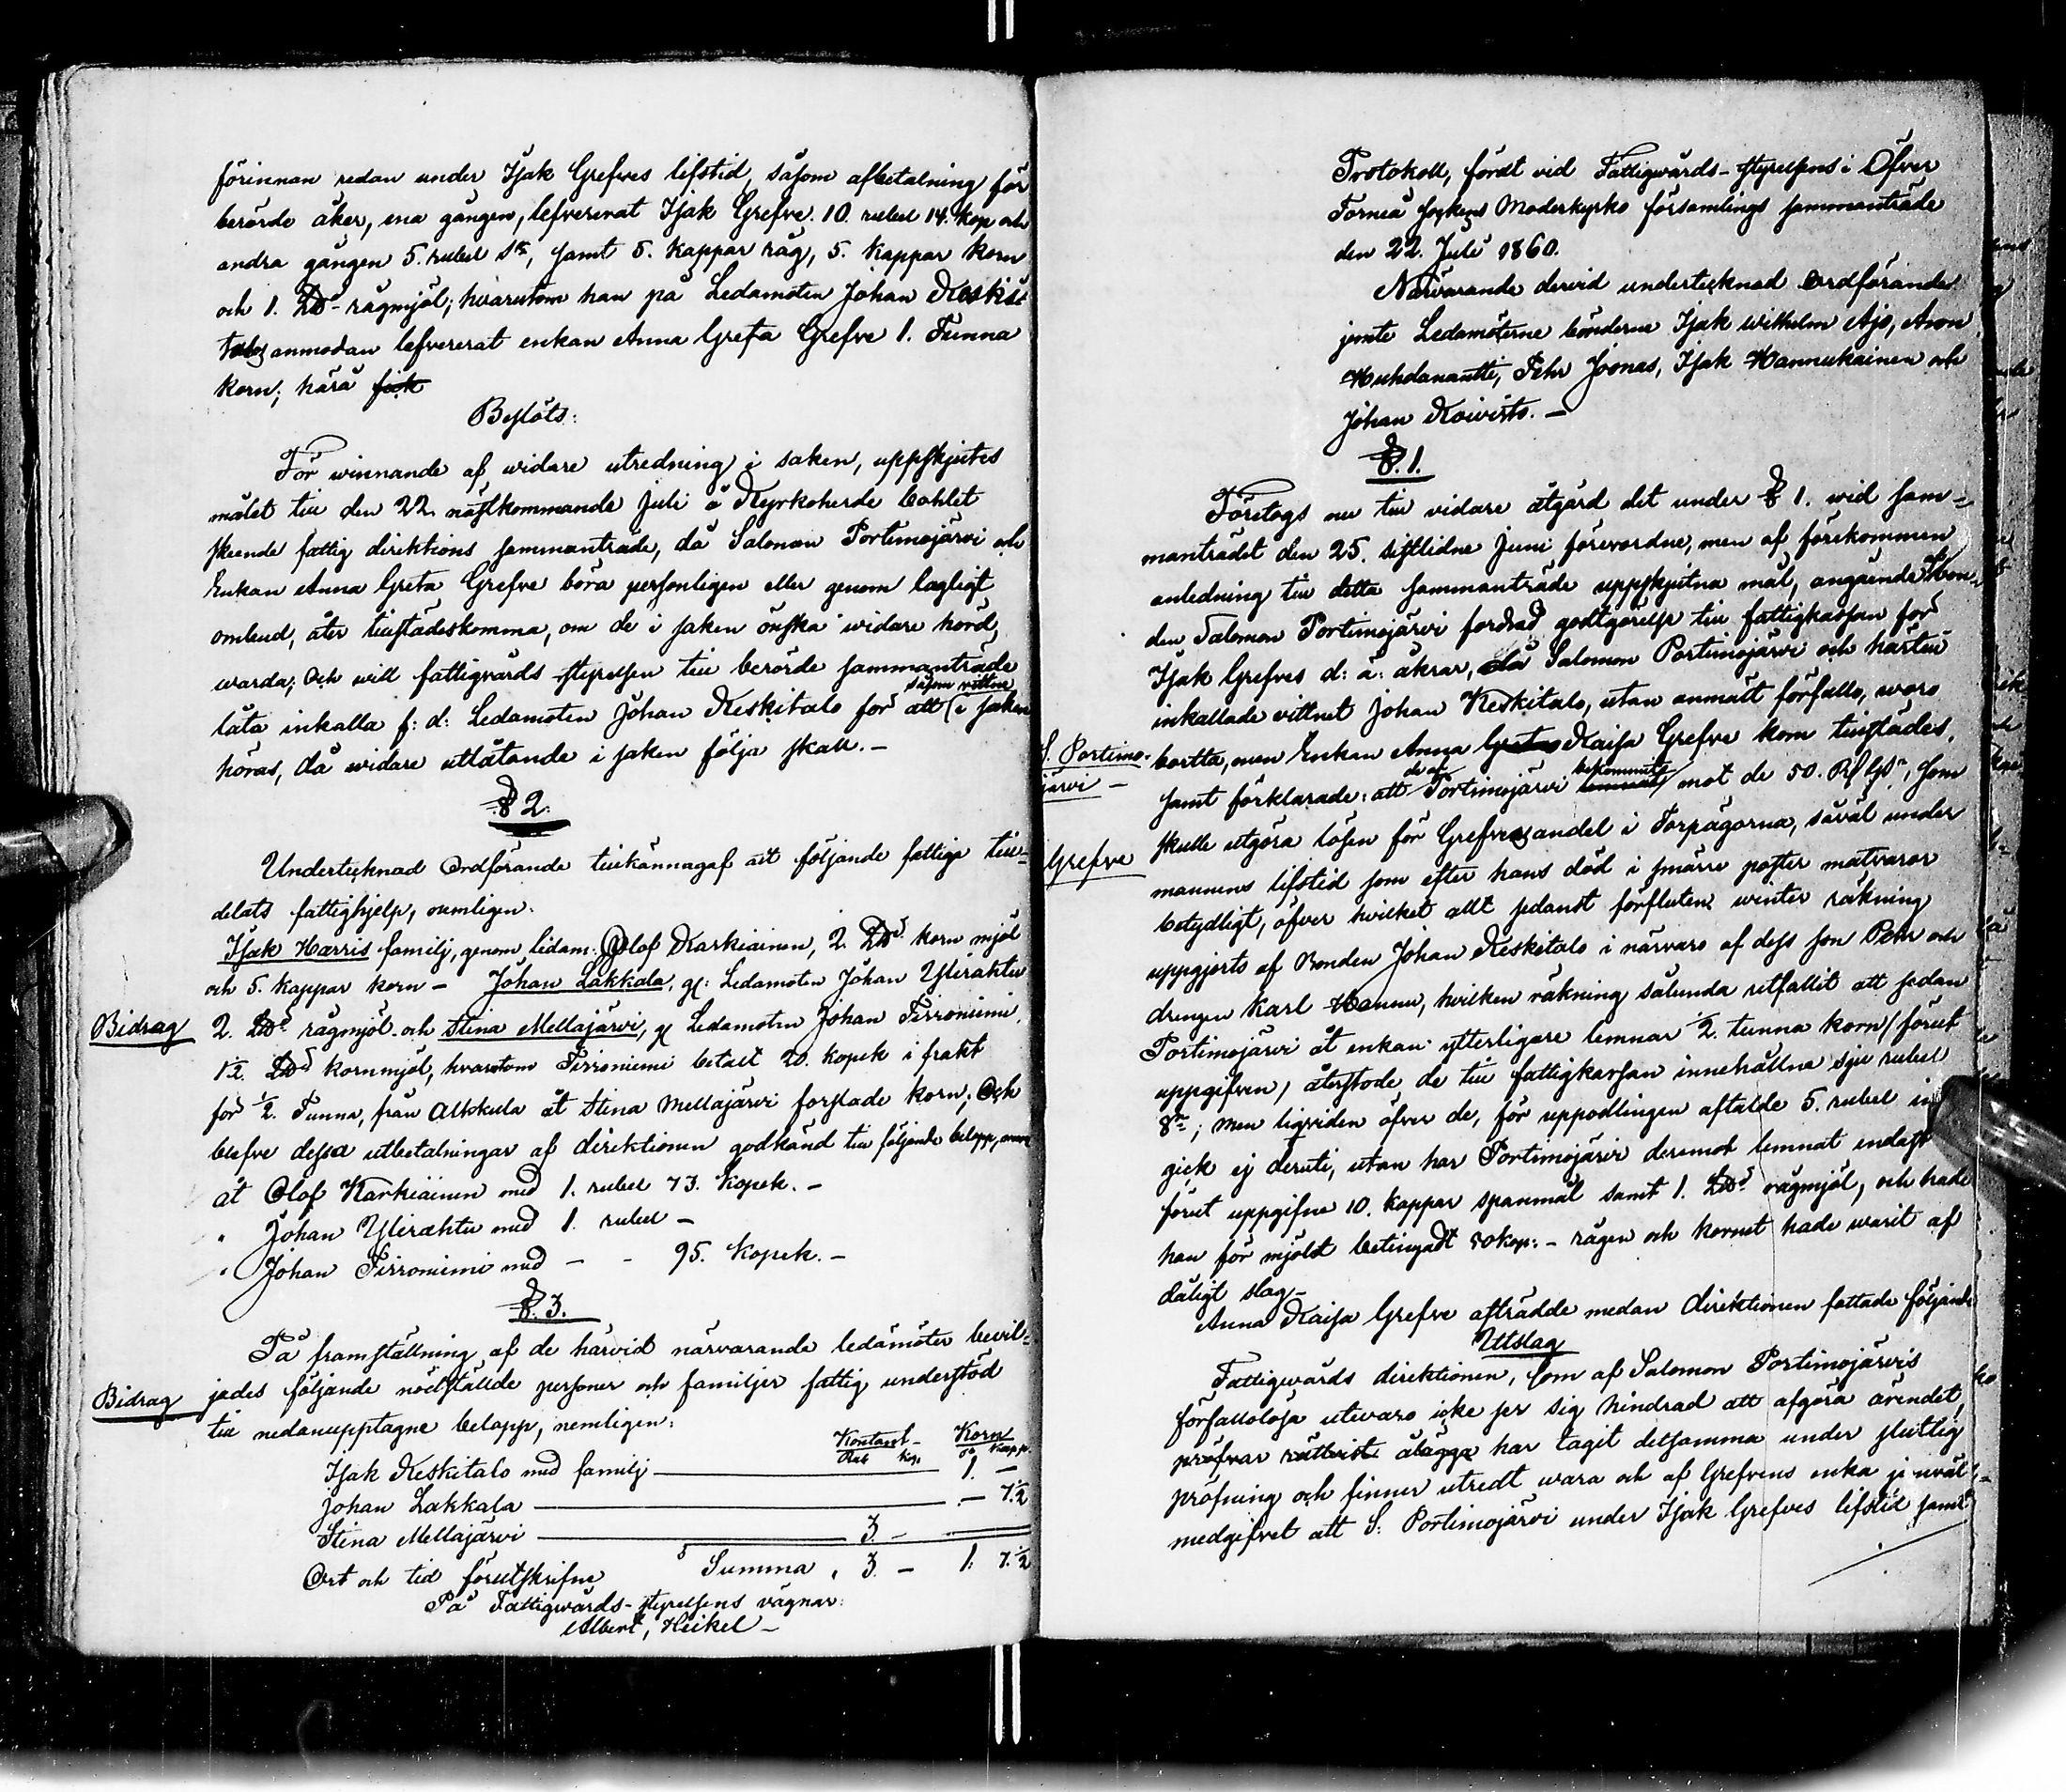 förinnan redan under Isak Grefves lifstid, såsom afbetalning för
berörde åker, ena gången, lefvererat Isak Grefve 10. rubel 14. kop och
andra gången 5. rubel Sr, samt 5. kappar råg, 5. kappar korn
och 1. L℔ rågmjöl; hvarutom han på Ledamoten Johan Keskitalos
anmodan lefvererat enkan Anna Greta Grefve 1. Tunna
korn; härå
Beslöts:
För winnande af widare utredning i saken, uppskjutes
målet till den 22 nästkommande Juli å Kyrkoherde bohlet
skeende fattig direktions sammanträde, då Salomon Portimojärvi och
Enkan Anna Greta Grefve böra personligen eller genom lagligt
ombud, åter tillstädeskomma, om de i saken önska widare hörd
warda; Och will fattigvårds styrelsen till berörde sammanträde
låta inkalla f: d: Ledamoten Johan Keskitalo for att såsom vittne i saken
höras, då widare utlåtande i saken följa skall. –
§ 2.
Undertecknad Ordförande tillkännagaf att följande fattige till-
delats fattighjelp, nemligen:
Isak Harris familj, genom Ledam: Olof Karkiainen, 2. L℔ korn mjöl
och 5. kappar korn – Johan Lakkala, gm: Ledamoten Johan Ylirahtu
Bidrag 2. L℔ rågmjöl och Stina Mellajärvi, gm Ledamoten Johan Tirroniemi
1½. L℔ kornmjöl, hvarutom Tirroniemi betalt 20. kopek i frakt
för ½. Tunna, från Alkkula åt Stina Mellajärvi forslade korn; Och
blefve dessa utbetalningar af direktionen godkänd till följande belopp,
åt Olof Karkiainen med 1. rubel 73. kopek. –
" Johan Ylirahtu med 1. rubel –
" Johan Tirroniemi med – - 95. kopek. –
§. 3.
På framställning af de härvid närvarande ledamöter bevil-
Bidrag jades följande nödstälde personer och familjer fattig understöd
till nedanupptagne belopp, nemligen:
Kontant Korn
Rub kop. Kapp.
Isak Keskitalo med familj 1. –
Johan Lakkala – 7.½
Stina Mellajärvi 3. –
Ort och tid förutskrifne Summa 3. – 1: 7.½
På Fattigwårds-styrelsens vägnar:
Albert Heikel –
Protokoll, fördt vid Fattigwårds-styrelsens i Öfver
Torneå sockens Moderkyrko församlings sammanträde
den 22. Juli 1860.
Närvarande dervid undertecknad Ordförande
jemte Ledamöterne bönderne Isak Wilhelm Ajo, Aron
Huhdanantti, Pehr Joonas, Isak Hannukainen och
Johan Koivisto. –
§. 1.
Företogs nu till vidare åtgärd det under § 1. wid sam-
manträdet den 25. sistlidne Juni förevordne, men af förekommen
anledning till detta sammanträde uppskjutna mål, angående Bon-
den Salomon Portimojärvi fordrad godtgörelse till fattigkassan för
Isak Grefves d: ä: åkrar, då Salomon Portimojärvi och härtill
inkallade vittnet Johan Keskitalo, utan anmält förfall, woro
S. Portimo-
järvi –
bortta, men Enkan Anna Greta Kaisa Grefve kom tillstädes,
samt förklarade: att de af Portimojärvi bekommit mot de 50. som
Grefve
skulle utgöra lösen för Grefves andel i Torpägorna, såväl under
mannens lifstid som efter hans död i smärre poster matvaror
betydligt, öfver hvilket allt sedanst förflutne winter räkning
uppgjorts af Bonden Johan Keskitalo i närvaro af dess son Pehr och
drengen Karl Hannu, hvilken räkning sålunda utfallit att sedan
Portimojärvi åt enkan ytterligare lemnar ½. tunna korn / förut
uppgifven / återstode de till fattigkassan innehållna sju rubel
Sr; men liqviden öfver de, för uppodlingen aftalde 5. rubel in
gick ej deruti, utan har Portimojärvi deremot lemnat endast
förut uppgifne 10. kappar spanmål samt 1. L℔ rågmjöl, och hade
han för mjölet betingadt 80 kop: – rågen och kornet hade warit af
dåligt slag –
Anna Kaisa Grefve afträdde medan direktionen fattade följande
Utslag
Fattigwårds direktionen, som af Salomon Portimojärvis
förfallolösa utevaro icke ser sig hindrad att afgöra ärendet,
pröfvar rättvist ålägga har tagit detsamma under slutlig
pröfning och finner utredt wara och af Grefvens enka jemväl
medgifvet att S: Portimojärvi under Isak Grefves lifstid samt